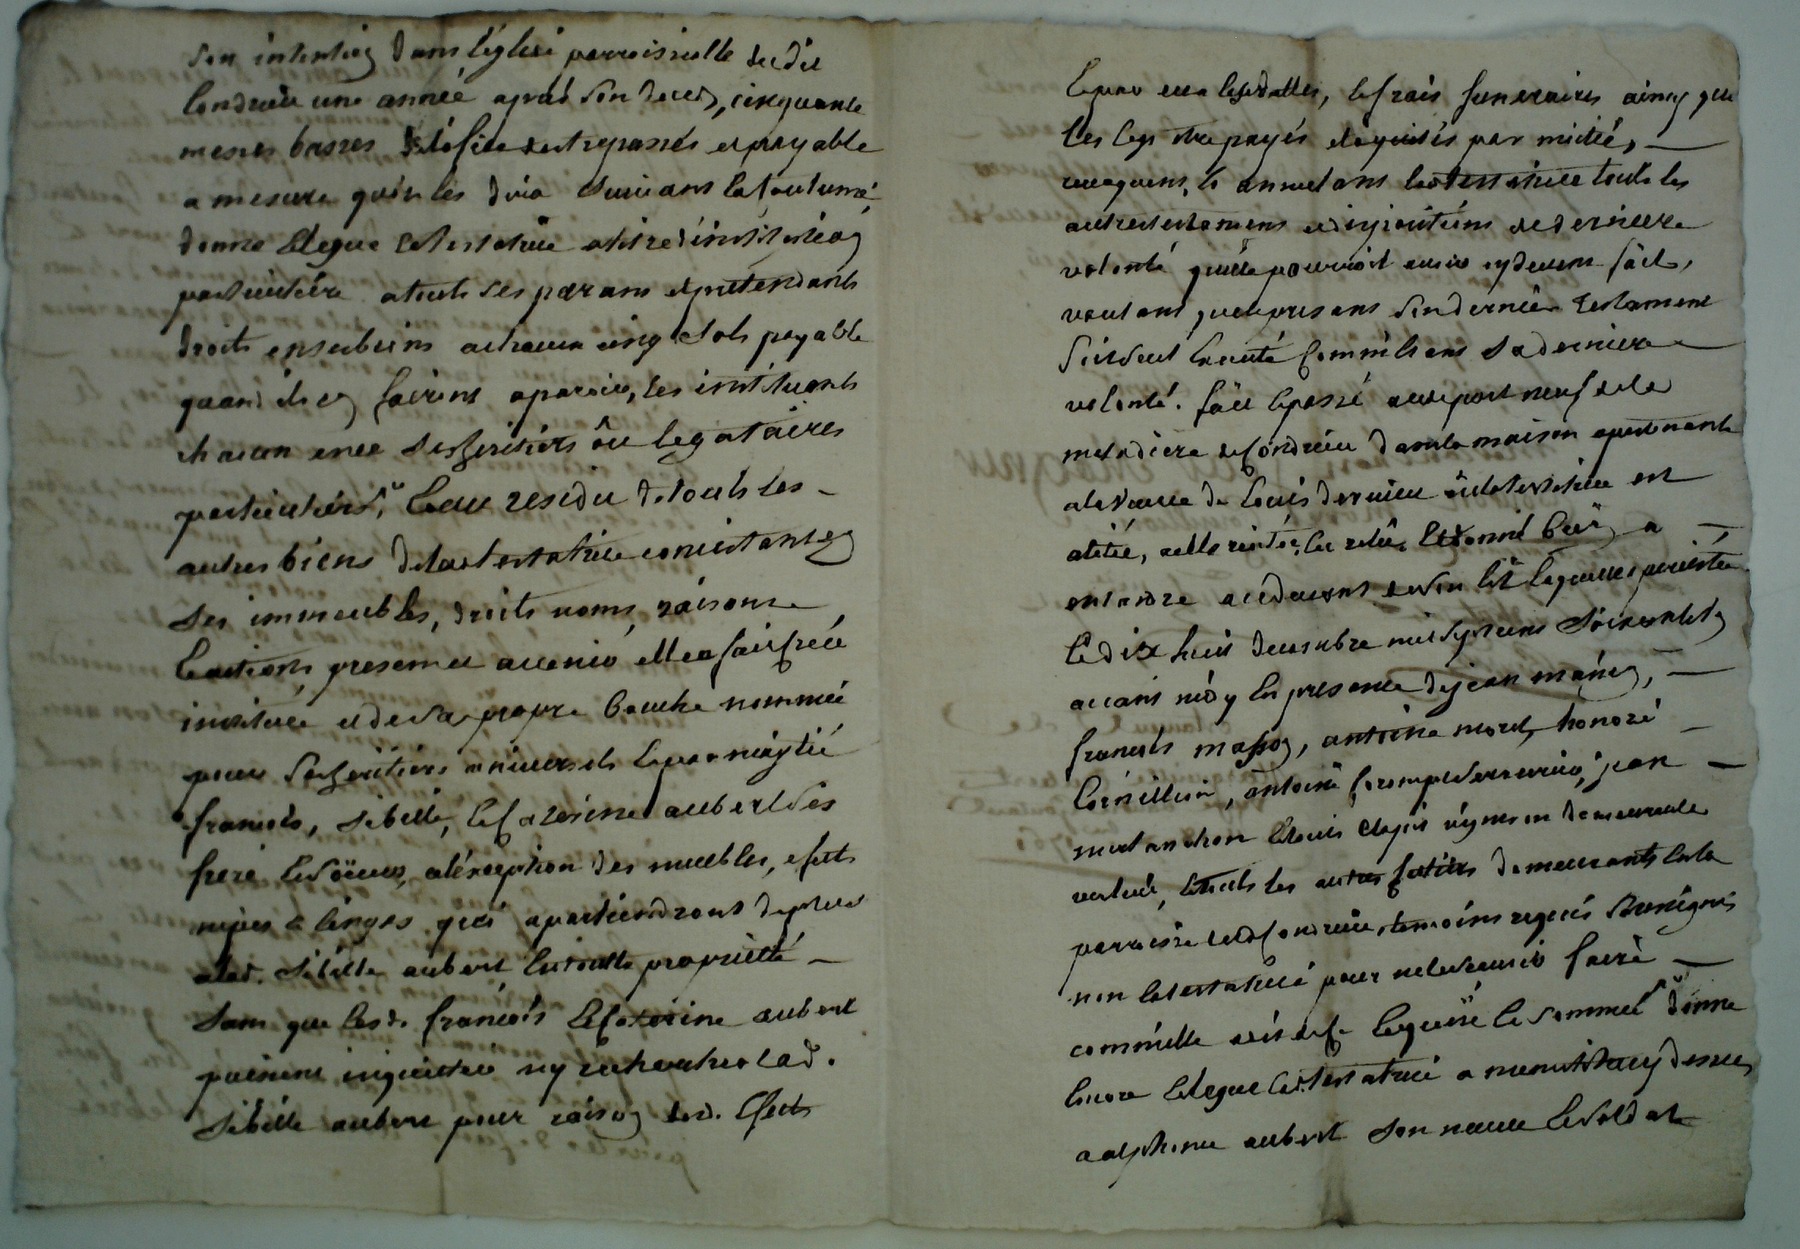 son intention dans l'église parroissielle dudit
Condrieu une année aprés son deces, cinquante
messes basses de l'ofice des trepassés et payable
a mesure qu'on les dira suivant la coutume,
donne & legue la testatrice a titre d'institution
particuliére a touts ses parans et pretendants
droits en ses biens a chacun cinq sols payable
quand ils en fairont aparoir, les instituants
chacun en ce ses heritiers ôu legataires
particuliers, Et au residu de touts les
autres biens de la testatrice consistants en
ses immeubles, droits noms, raisons
Et actions presents et avenir elle a fait créé
institué et de sa propre bouche nommé
pour ses heritiers universels Et par moytié
francois, sibille, Et Caterine aubert ses
frere Et sœurs, a l'éxception des meubles, efects
nipes & linges qui apartiendront de plus
a lad. sibille aubert En toutte proprietté
sans que lesd. francois Et Caterine aubert
puissent inquietter ny rechercher lad.
sibille aubert pour raison desd. Efects
Et par eux les dettes, les frais funeraires ainsy que
les legs etre payés et aquités par moitié,
revoquant, & annullant la testatrice touts les
autres testaments et dispositions de derniere
volonté qu'elle pourroit avoir cy devant fait,
voulant que le present son dernier testament
soit seul Executé Comme Etant sa derniere
volonté. fait Et passé au port neuf de la
maladiere de Condrieu dans la maison apartenante
a la veuve de Louis dernieu ou la testatrice est
alitée, a elle recité, Leu relu, Et donné bien a
entendre au devant de son lit lequel y persiste
Le dix huit decembre mil sept cent soixante
avant midy En presence de jean
francois, antoine morel, honoré
Cornillion, antoine serrurier, jean
Et Louis demeurant
, Et touts les autres demeurants En la
parroisse dud. Condrieu, temoins requis soussignés
non la testatrice pour ne le sçavoir faire
comme elle a dit de ce Enquise Et sommée donne
Encore Et legue la testatrice
aubert son neveu Et soldat